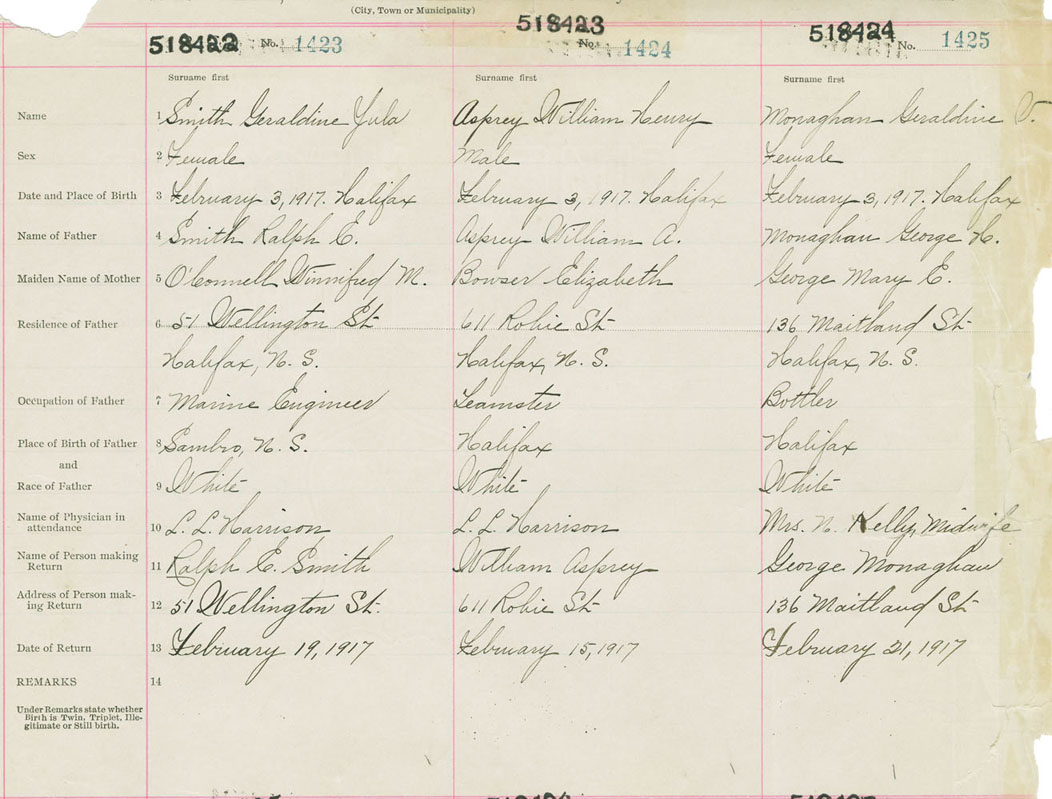 (City, Town or Municipality)
518422 No. 1423 518423 No. 1424 518424 No. 1425
Surname first Surname first Surname first
Name 1 Smith Geraldine Yula Asprey William Henry Monaghan Geraldine V.
Sex 2 Female Male Female
Date and Place of Birth 3 February 3, 1917. Halifax February 3, 1917. Halifax February 3, 1917. Halifax
Name of Father 4 Smith Ralph E. Asprey William A. Monaghan George H.
Maiden Name of Mother 5 O'Connell Winnifred M. Bowser Elizabeth George Mary E.
Residence of Father 6 51 Wellington St 611 Robie St 136 Maitland St
Halifax, N. S. Halifax, N. S. Halifax, N. S.
Occupation of Father 7 Marine Engineer Teamster Bottler
Place of Birth of Father 8 Sambro, N. S. Halifax Halifax
and
Race of Father 9 White White White
Name of Physician in
attendance 10 L. L. Harrison L. L. Harrison Mrs. N. Kelly, Midwife
Name of Person making
Return 11 Ralph E. Smith William Asprey George Monaghan
Address of Person mak-
ing Return 12 51 Wellington St. 611 Robie St 136 Maitland St
Date of Return 13 February 19, 1917 February 15, 1917 February 21, 1917
REMARKS 14
Under Remarks state whether
Birth is Twin, Triplet, Ille-
gitimate or Still birth.